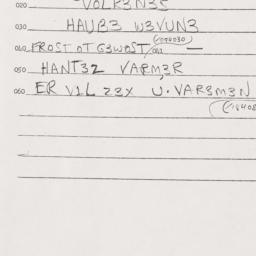 020 VOLK3N3S
030 HAUB3 W3VUN3
040 FROST OT G3WOST
050 HANT3Z VARM3R
060 ER V1L Z3X U. VAR3M3N